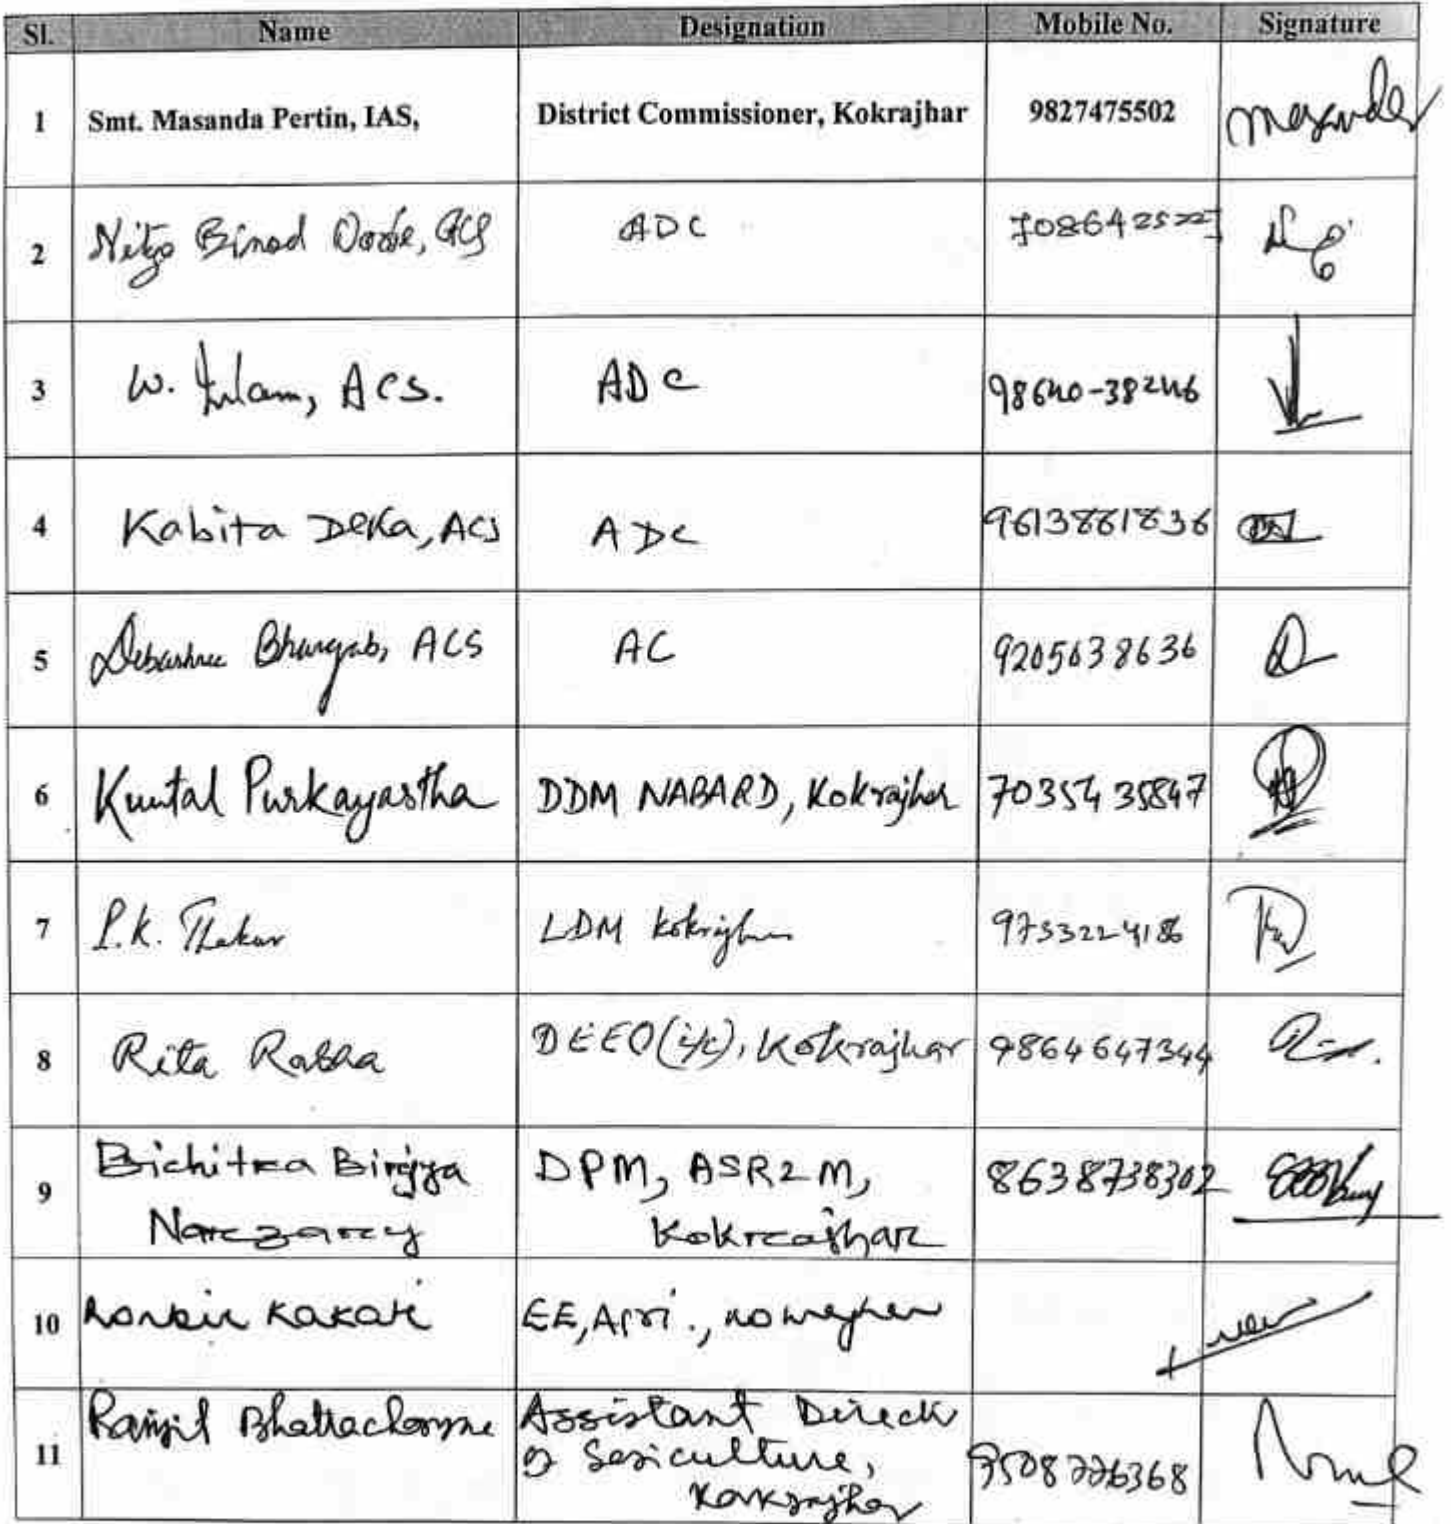 Sl. Name Designation Mobile No. Signature
1 Smt. Masanda Pertin, IAS, District Commissioner, Kokrajhar 9827475502
2 Binod ACS ADC
3 W. Islam, ACS. ADC 98640-38246
4 Kabita Deka, ACS ADC 9613861836
5 Debashree Bhargab, ACS AC 9205638636
6 Kuntal Purkayastha DDM NABARD, Kokrajhar 7035435847
7 P.K. Thakur LDM Kokrajhar
8 Rita Rabha DEEO(i/c), Kokrajhar 9864647344
9 Bichitra Birjya DPM, ASRLM, 8638738302
Narzary Kokrajhar
10 Kakati EE, Agri.,
11 Ranjit Bhattacharjee Assistant Director
of Sericulture,
Kokrajhar